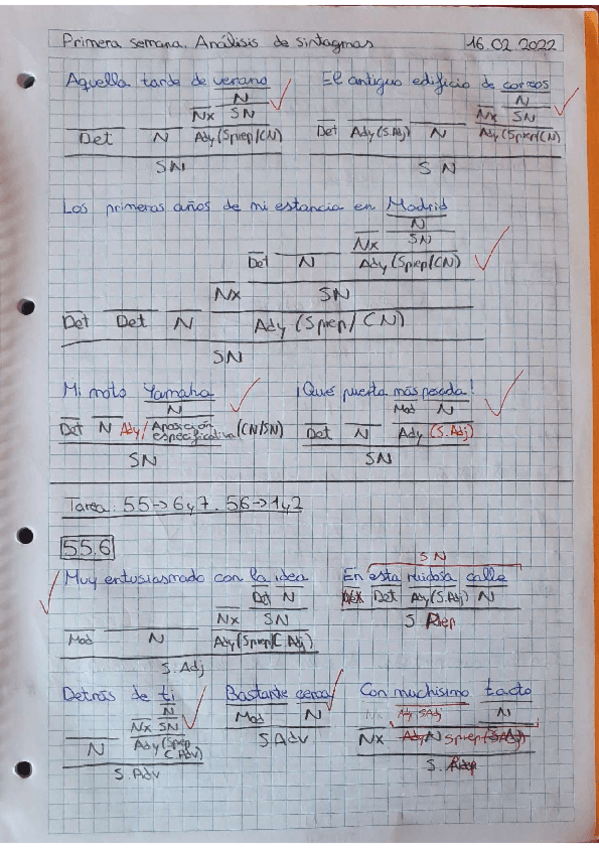 Primera semana. Análisis de sintagmas 16.02.2022
Aquella tarde de verano El antiguo edificio de correos
N N
Nx SN Nx SN
Det N Ady(Sprep/CN) Det Ady(S.Adj) N Ady(Sprep/CN)
SN SN
Los primeros años de mi estancia en Madrid
N
Nx SN
Det N Ady(Sprep/CN)
Nx SN
Det Det N Ady (Sprep/CN)
SN
Mi moto Yamaha ¡Qué puerta más pesada!
N Mod N
Det N Ady/Aposición especificativa(CN/SN) Det N Ady (S.Adj)
SN SN
Tarea: 55→6y7. 56→1y2
55.6
SN
Muy entusiasmado con la idea En esta ruidosa calle
Det N Det Ady(S.Adj) N
Nx SN S Prep
Mod N Ady(Sprep/C.Adj)
S.Adj
Detrás de ti Bastante cerca Con muchísimo tacto
N Mod N Ady SAdj N
Nx SN S.Adv
N Ady(Sprep C.Adv) Nx Sprep
S.Adv